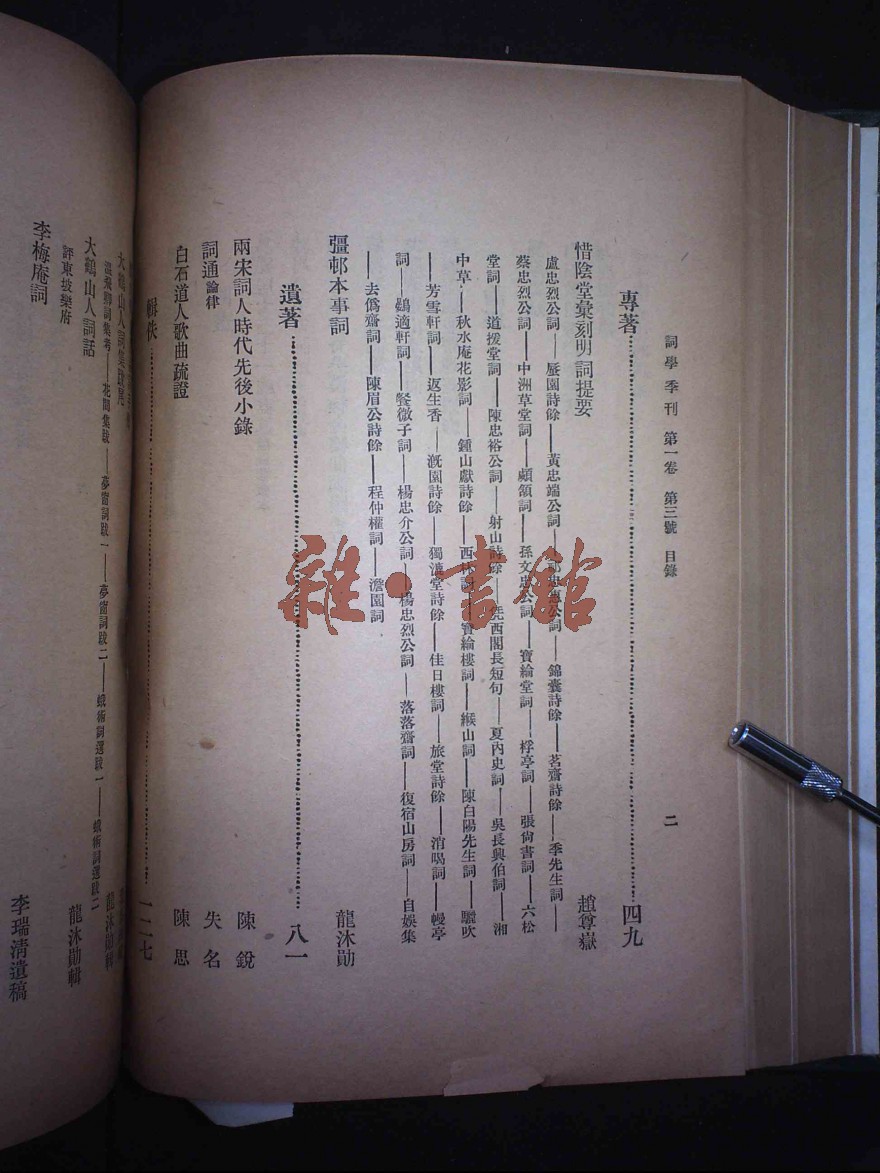 詞學季刊 第一卷 第三號 目錄 二
專著 四九
惜陰堂彙刻明詞提要 趙尊嶽
盧忠烈公詞——蜃園詩餘——黃忠端公詞——公詞——錦囊詩餘——茗齋詩餘——季先生詞——
蔡忠烈公詞——中洲草堂詞——頗頷詞——孫文忠公詞——寶綸堂詞——桴亭詞——張尙書詞——六松
堂詞——道援堂詞——陳忠裕公詞——射山詩餘——凭西閣長短句——夏內史詞——吳長興伯詞——湘
中草——秋水庵花影詞——鍾山獻詩餘——寶綸樓詞——緱山詞——陳白陽先生詞——驪吹
——芳雪軒詞——返生香——溉園詩餘——獨漉堂詩餘——佳日樓詞——旅堂詩餘——消暍詞——幔亭
詞——鷃適軒詞——餐微子詞——楊忠介公詞——楊忠烈公詞——落落齋詞——復宿山房詞——自娛集
——去僞齋詞——陳眉公詩餘——程仲權詞——澹園詞
彊邨本事詞 龍沐勛
遺著 八一
兩宋詞人時代先後小錄 陳銳
詞通論律 失名
白石道人歌曲疏證 陳思
輯佚 一二七
大鶴山人詞集跋尾 龍沐勛輯
溫飛卿詞集考——花間集跋——夢窗詞跋一——夢窗詞跋二——蛾術詞選跋一——蛾術詞選跋二
大鶴山人詞話 龍沐勛輯
評東坡樂府
李梅庵詞 李瑞清遺稿
雜·書館